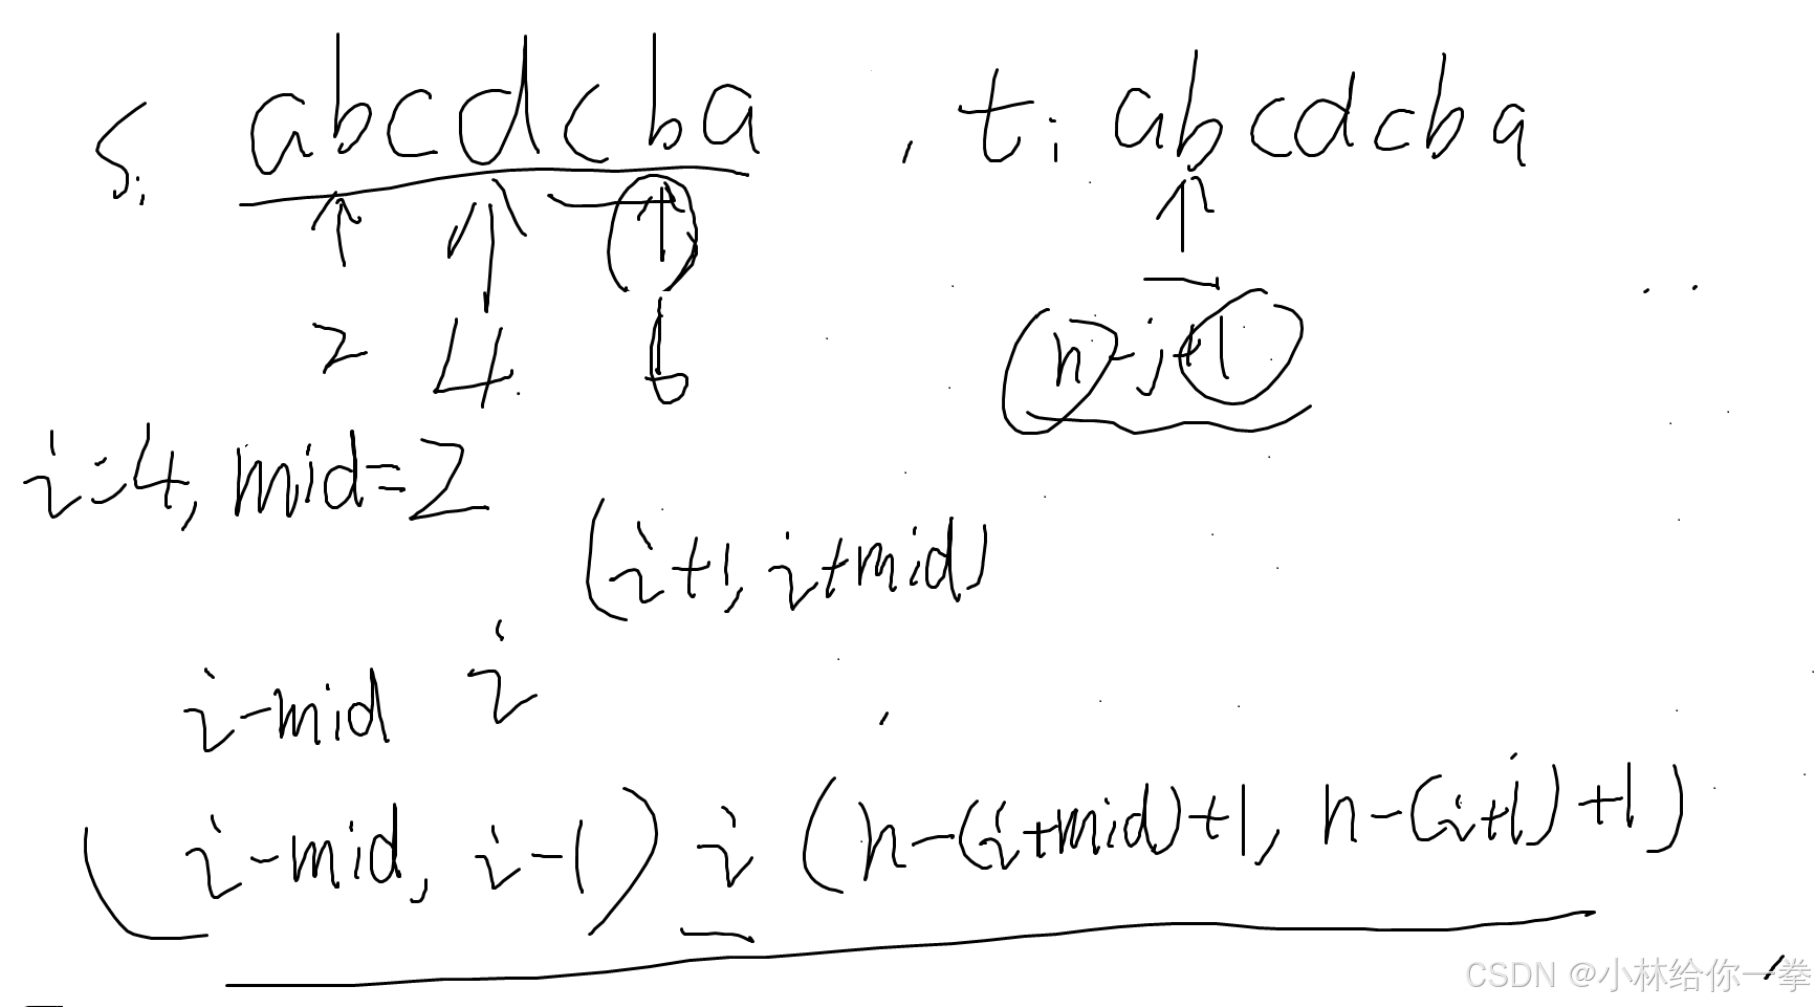 s: abcdcba , t: abcdcba
2 4 6 n-j+1
i=4, mid=2
(i+1, i+mid)
i-mid i
(i-mid, i-1) i (n-(i+mid)+1, n-(i+1)+1)
CSDN @小林给你一拳